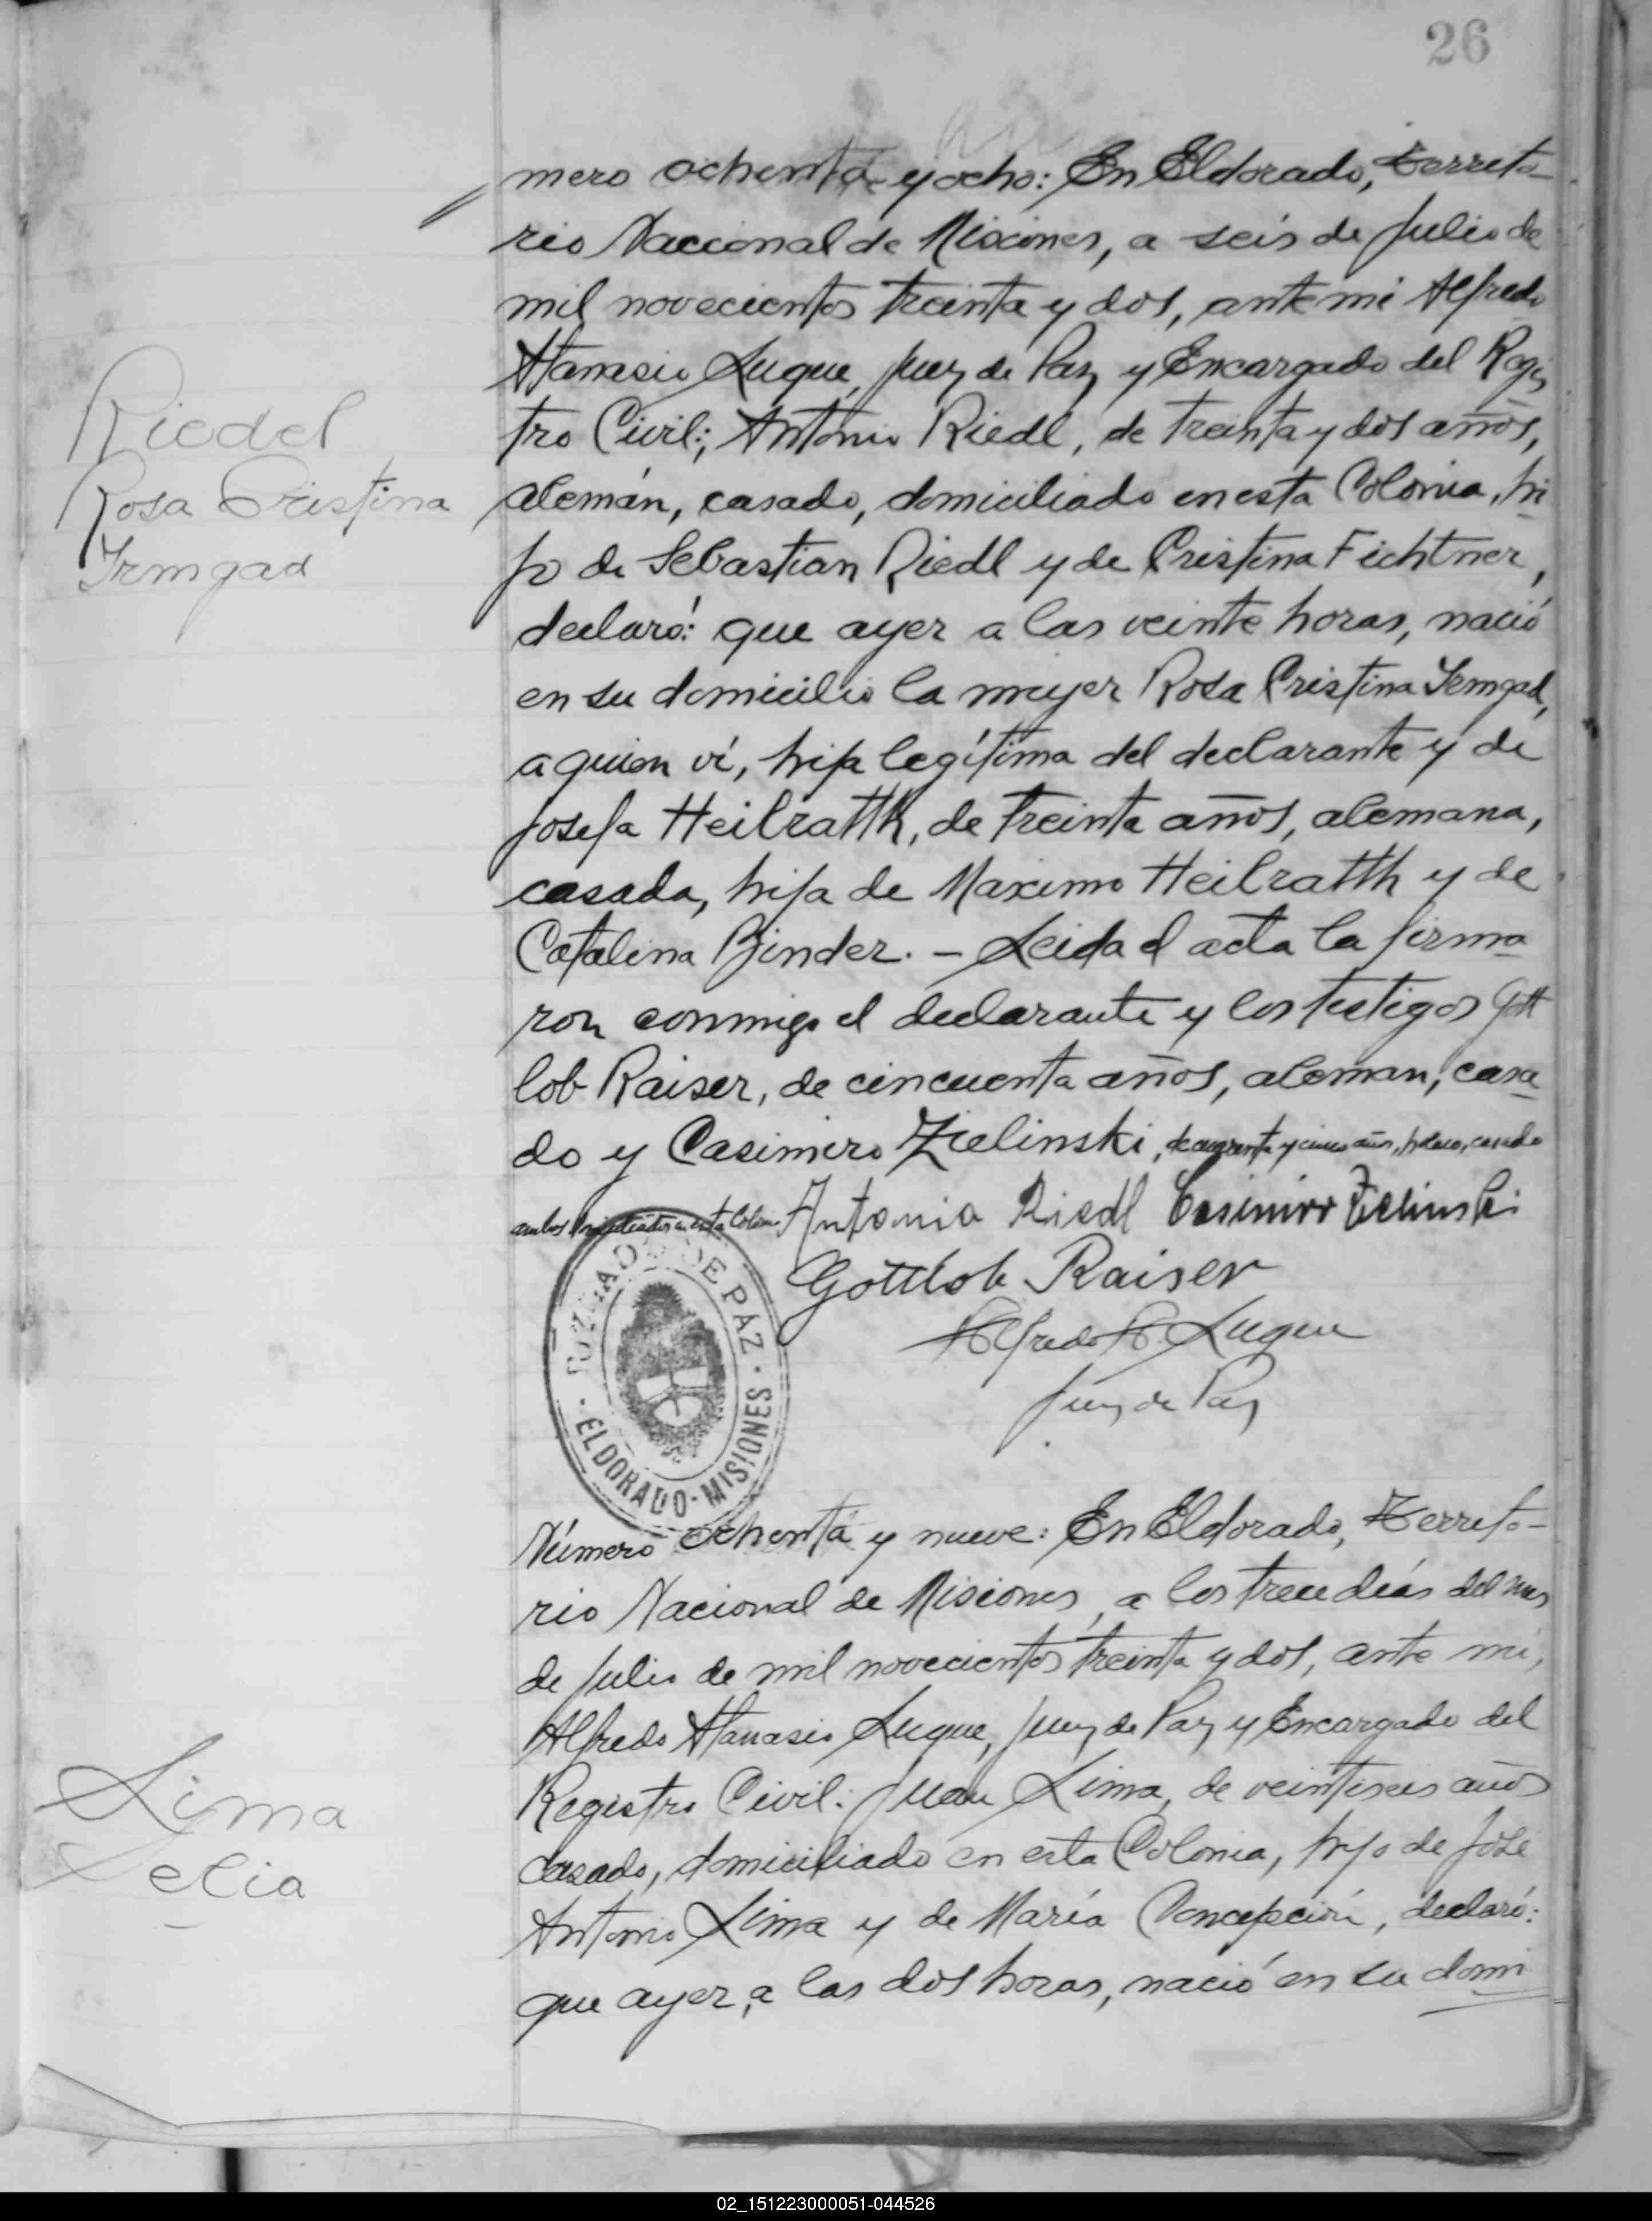 26
mero ochenta y ocho: En Eldorado, Territo-
rio Nacional de Misiones, a seis de Julio de
mil novecientos treinta y dos, ante mi Alfredo
Atanasio Luque, Juez de Paz y Encargado del Regis
tro Civil; Antonio Riedl, de treinta y dos años,
Riedel
Rosa Cristina
Irmgad
alemán, casado, domiciliado en esta Colonia, hi
jo de Sebastian Riedl y de Cristina Fichtner,
declaró: que ayer a las veinte horas, nació
en su domicilio la mujer Rosa Cristina Irmgad,
a quien ví, hija legítima del declarante y de
Josefa Heilratth, de treinta años, alemana,
casada, hija de Maximo Heilratth y de
Catalina Binder. - Leida el acta la firma
ron conmigo el declarante y los testigos Gott
lob Raiser, de cincuenta años, aleman, casa
do y Casimiro Zielinski, de cuarenta y cinco años, polaco, casado
ambos domiciliados en esta Colonia Antonio Riedl Casimiro Zielinski
Gottlob Raiser
Alfredo A. Luque
Juez de Paz
JUZGADO DE PAZ
· ELDORADO - MISIONES ·
Número ochenta y nueve: En Eldorado, Territo-
rio Nacional de Misiones, a los trece días del mes
de Julio de mil novecientos treinta y dos, ante mi,
Alfredo Atanasio Luque, Juez de Paz y Encargado del
Registro Civil: Juan Lima, de veintiseis años
casado, domiciliado en esta Colonia, hijo de José
Antonio Lima y de María Concepción, declaró:
que ayer, a las dos horas, nació en su domi
Lima
elia
02_151223000051-044526